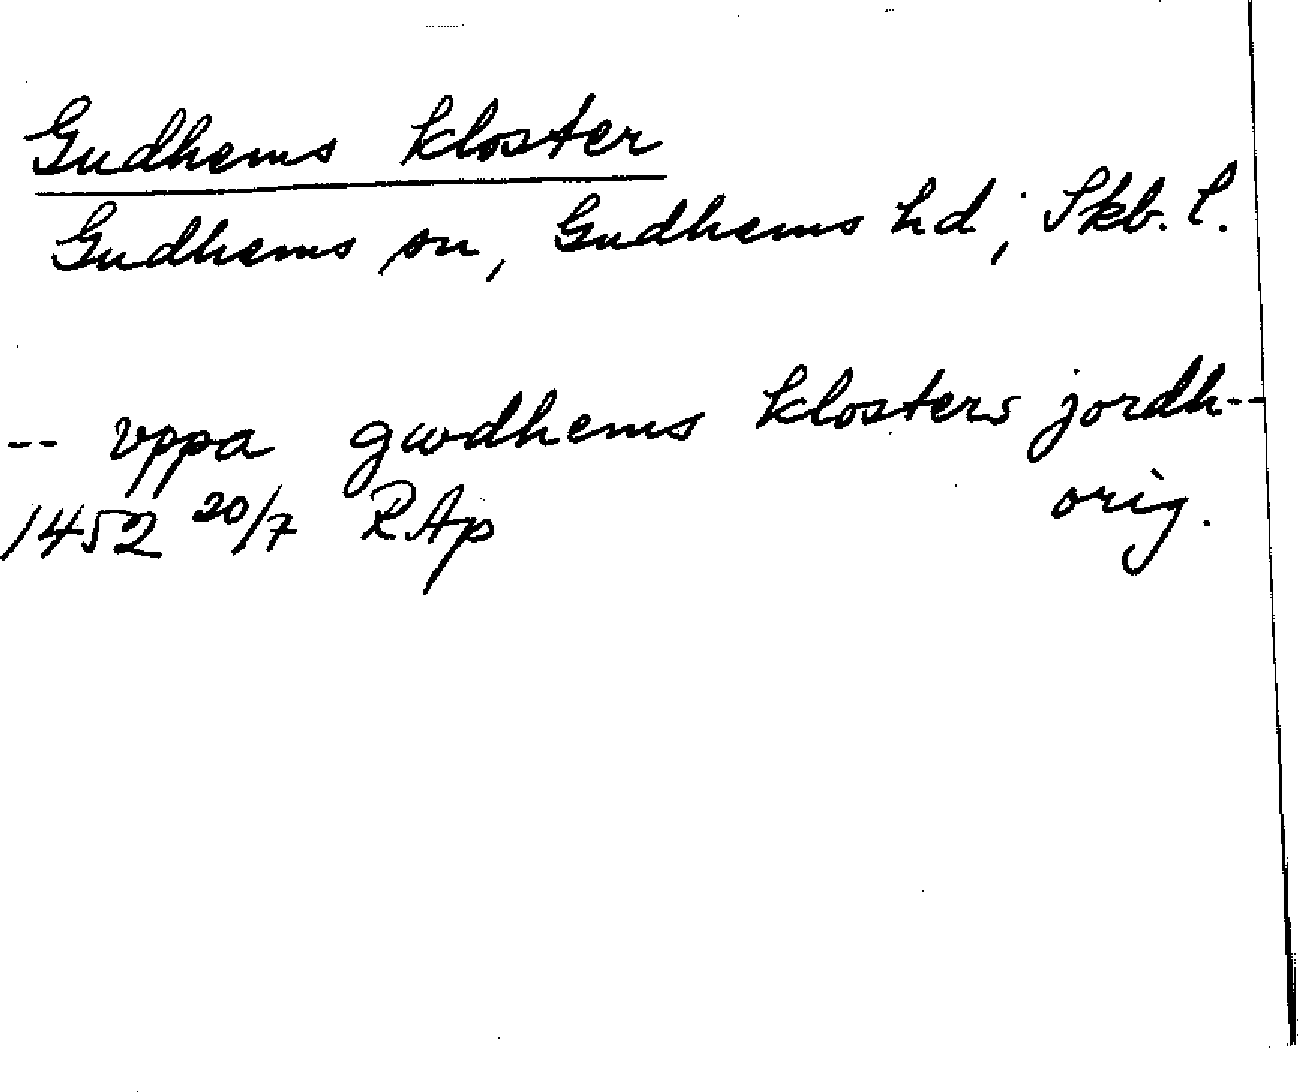 Gudhems kloster
Gudhems sn, Gudhems hd, Skb. l.
-- vppa gwdhems klosters jordh --
1452 20/7 RAp orig.